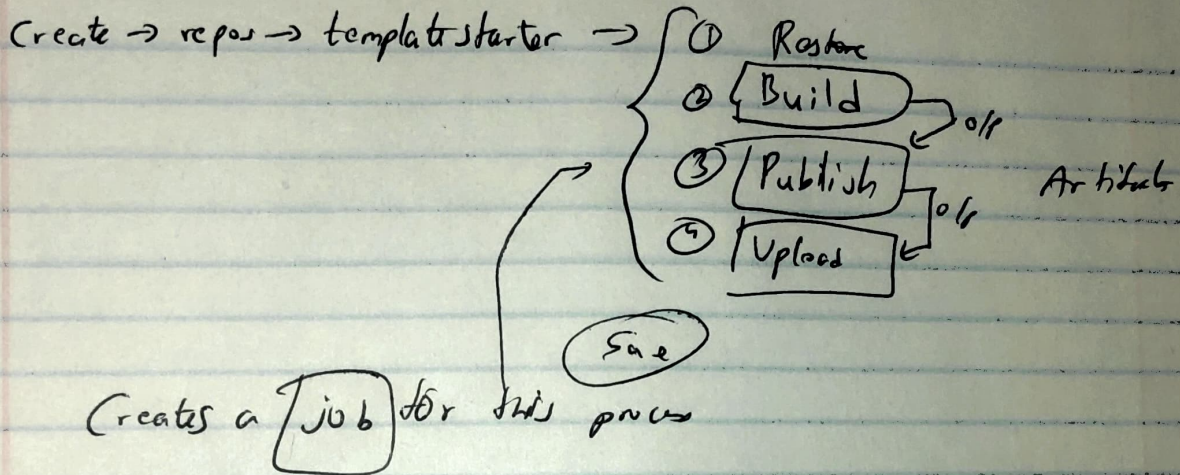 Create → repos → template starter → ① Restore
② Build
o/p
③ Publish
Artifacts
o/p
④ Upload
Save
Creates a job for this process